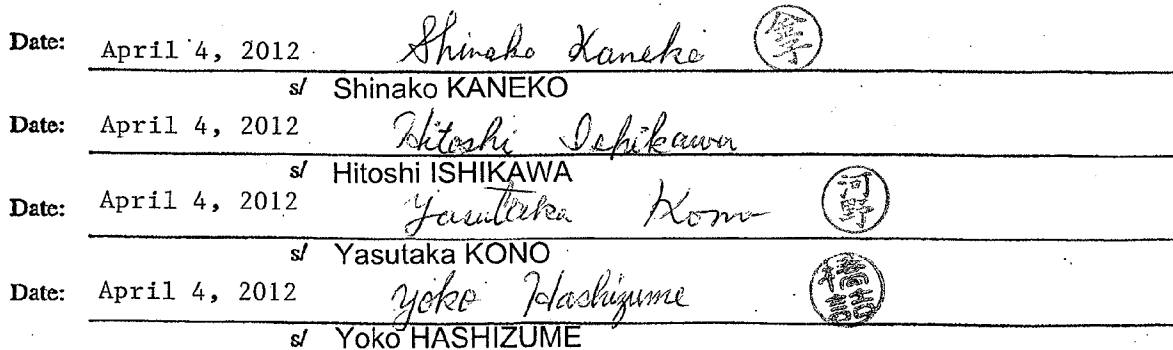 Date: April 4, 2012 Shinako Kaneko 金子
s/ Shinako KANEKO
Date: April 4, 2012 Hitoshi Ishikawa
s/ Hitoshi ISHIKAWA
Date: April 4, 2012 Yasutaka Kono 河野
s/ Yasutaka KONO
Date: April 4, 2012 Yoko Hashizume 橋詰
s/ Yoko HASHIZUME